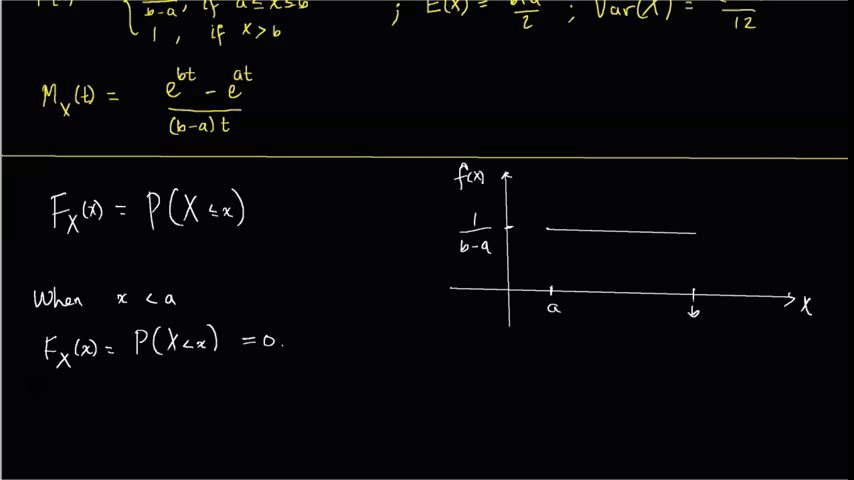 b-a , if a ≤ x ≤ b ; E(X) = 2 ; Var(X) = 12
1 , if x > b
M_X(t) = e^{bt} - e^{at} / (b-a)t
F_X(x) = P(X ≤ x)
When x < a
F_X(x) = P(X < x) = 0.
f(x)
1
b-a
a b X